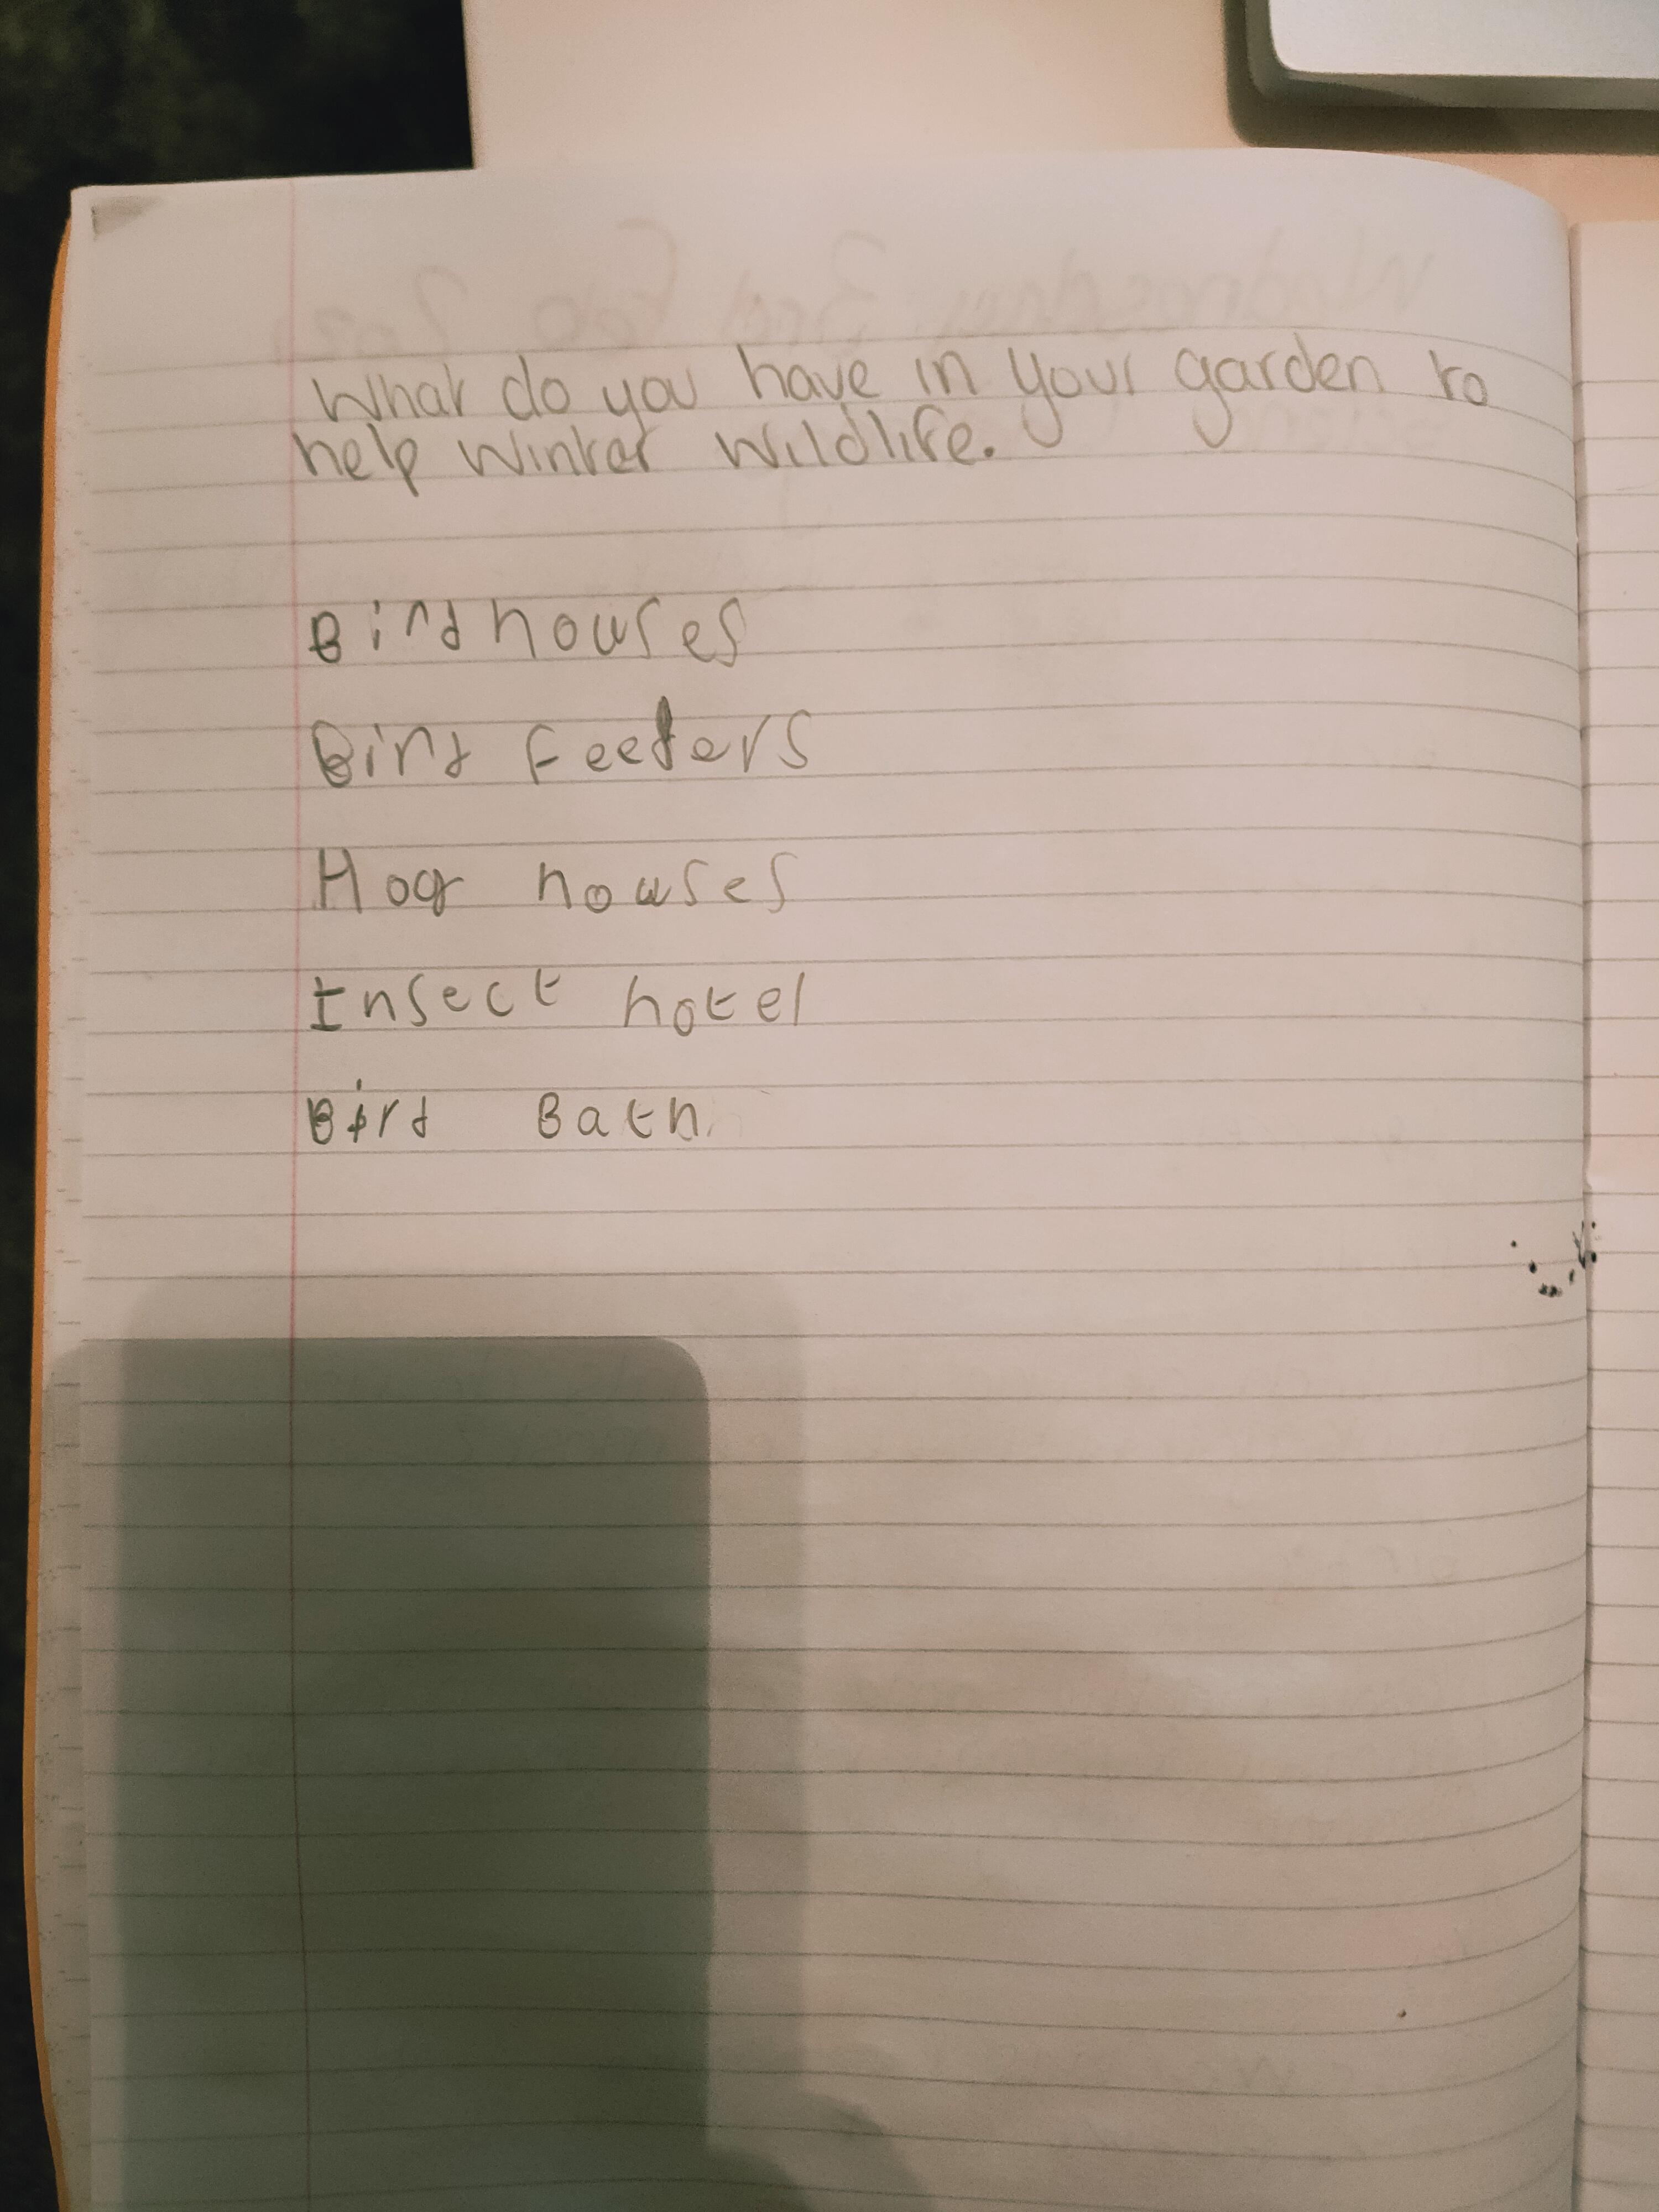 What do you have in your garden to
help Winter Wildlife.
Bird houses
Bird feeders
Hog houses
Insect hotel
Bird Bath